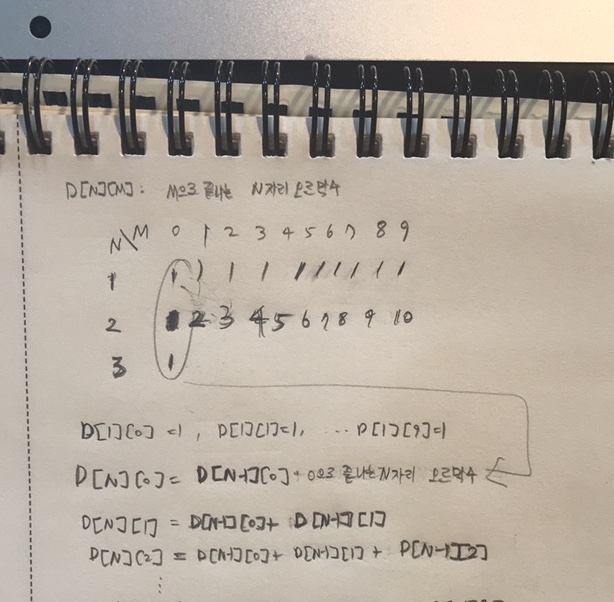 D[N][M] : M으로 끝나는 N자리 오르막수
N\M 0 1 2 3 4 5 6 7 8 9
1 1 1 1 1 1 1 1 1 1 1
2 1 2 3 4 5 6 7 8 9 10
3 1
D[1][0] =1 , D[1][1]=1, ... D[1][9]=1
D[N][0] = D[N-1][0] → 0으로 끝나는 N자리 오르막수
D[N][1] = D[N-1][0] + D[N-1][1]
D[N][2] = D[N-1][0] + D[N-1][1] + D[N-1][2]
⋮